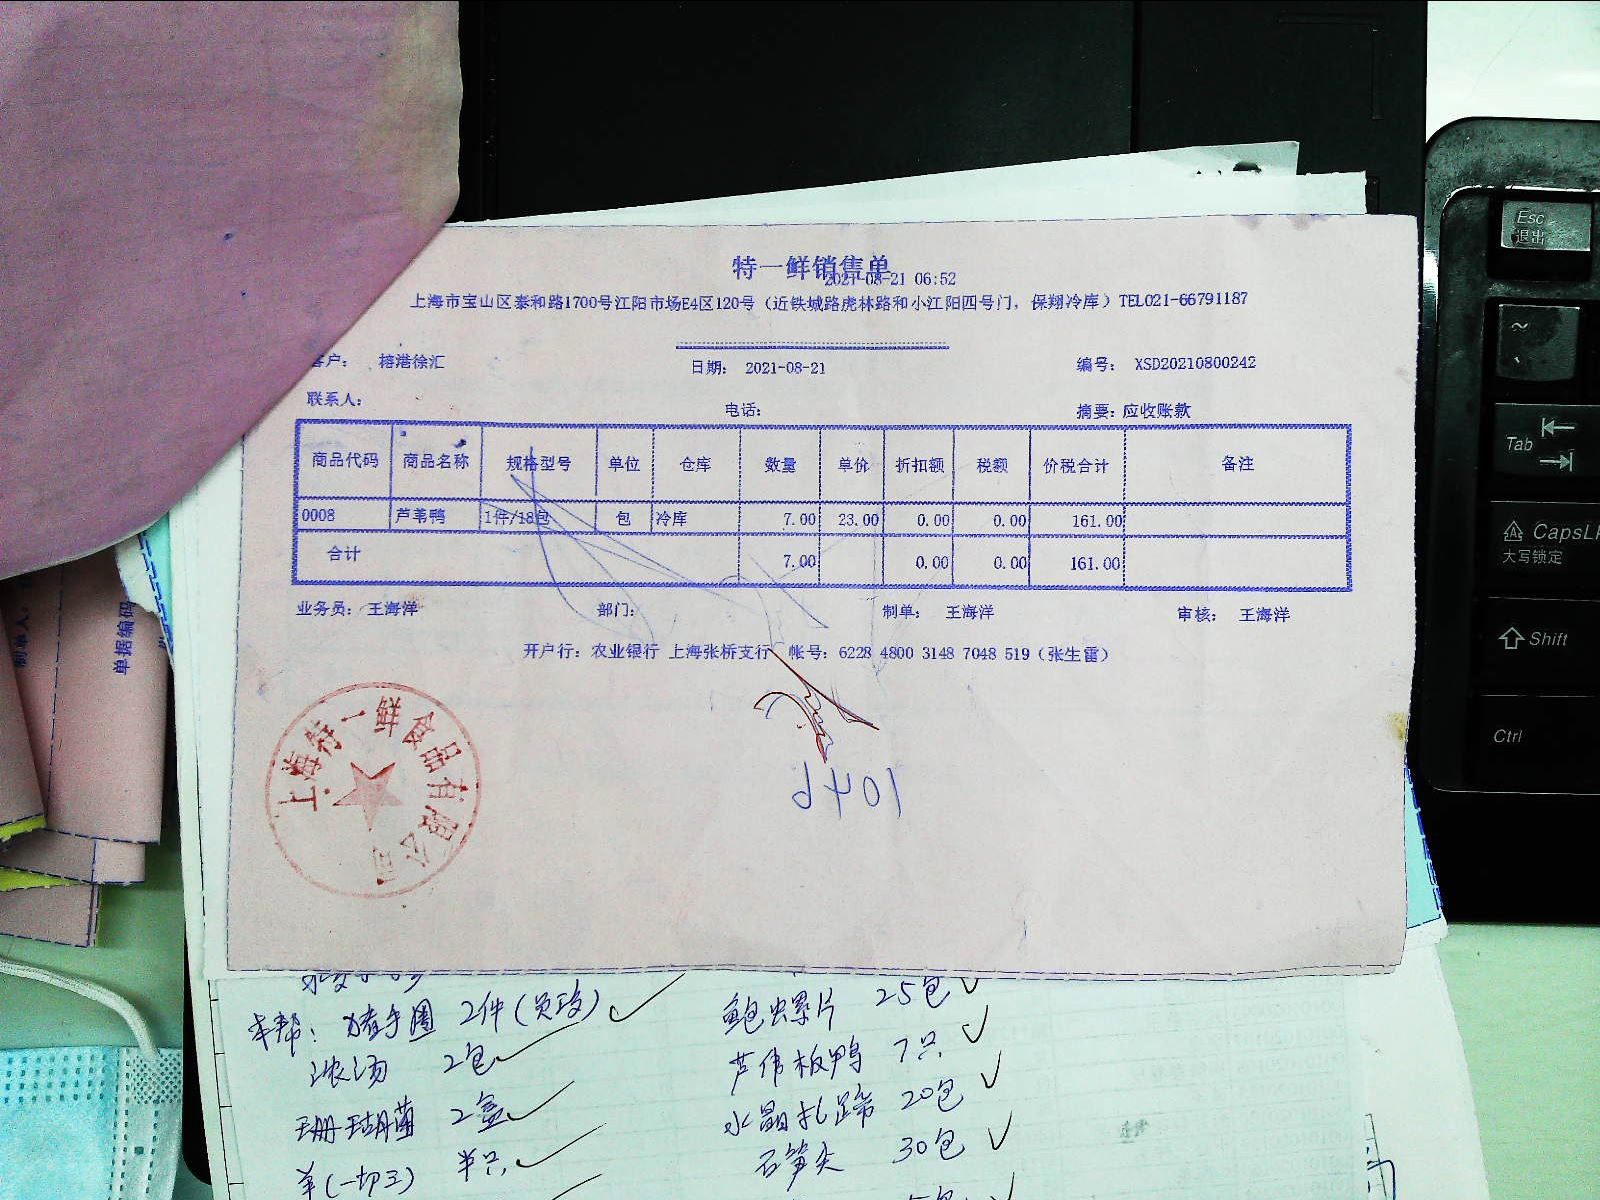 特一鲜销售单
2021-08-21 06:52
上海市宝山区泰和路1700号江阳市场E4区120号（近铁城路虎林路和小江阳四号门，保翔冷库）TEL021-66791187
客户： 榕港徐汇 日期： 2021-08-21 编号： XSD20210800242
联系人： 电话： 摘要：应收账款
商品代码 商品名称 规格型号 单位 仓库 数量 单价 折扣额 税额 价税合计 备注
0008 芦苇鸭 1件/18包 包 冷库 7.00 23.00 0.00 0.00 161.00
合计 7.00 0.00 0.00 161.00
业务员： 王海洋 部门： 制单： 王海洋 审核： 王海洋
开户行：农业银行 上海张桥支行 帐号：6228 4800 3148 7048 519（张生雷）
上海特一鲜食品有限公司
本帮：猪手圈 2件 鲍螺片 25包
浓汤 2包 芦伟板鸭 7只
珊瑚菌 2盒 水晶扎蹄 20包
羊(一切三) 半只 石笋尖 30包
单据编码
制单人：
Esc
退出
~
Tab
CapsL
大写锁定
Shift
Ctrl